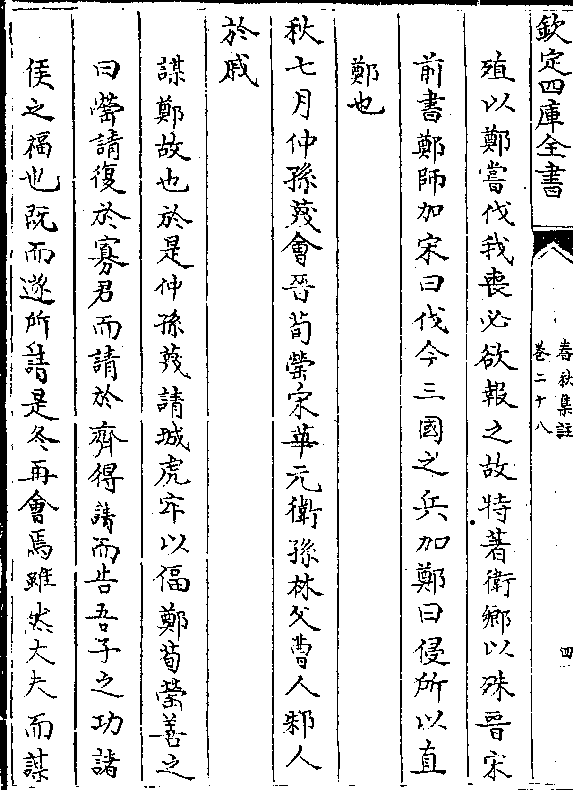 欽定四庫全書
春秋集註
卷二十八
四
殖以鄭嘗伐我喪必欲報之故特著衛卿以殊晉宋
前書鄭師加宋曰伐今三國之兵加鄭曰侵所以直
鄭也
秋七月仲孫蔑會晉荀罃宋華元衛孫林父曹人邾人
於戚
謀鄭故也於是仲孫蔑請城虎牢以偪鄭荀罃善之
曰罃請復於寡君而請於齊得請而告吾子之功諸
侯之福也既而遂所請是冬再會焉雖然大夫而謀